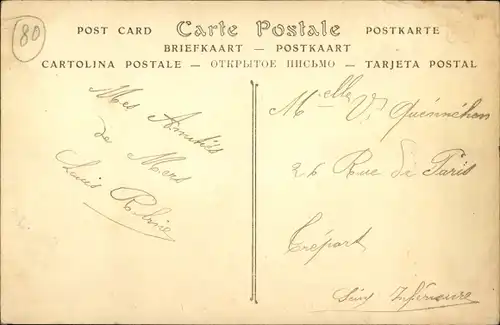 80
POST CARD Carte Postale POSTKARTE
BRIEFKAART — POSTKAART
CARTOLINA POSTALE — ОТКРЫТОЕ ПИСЬМО — TARJETA POSTAL
Mes Amitiés
de Mers
Louis
Melle Vr
26 Rue de Paris
Tréport
Seine Inférieure